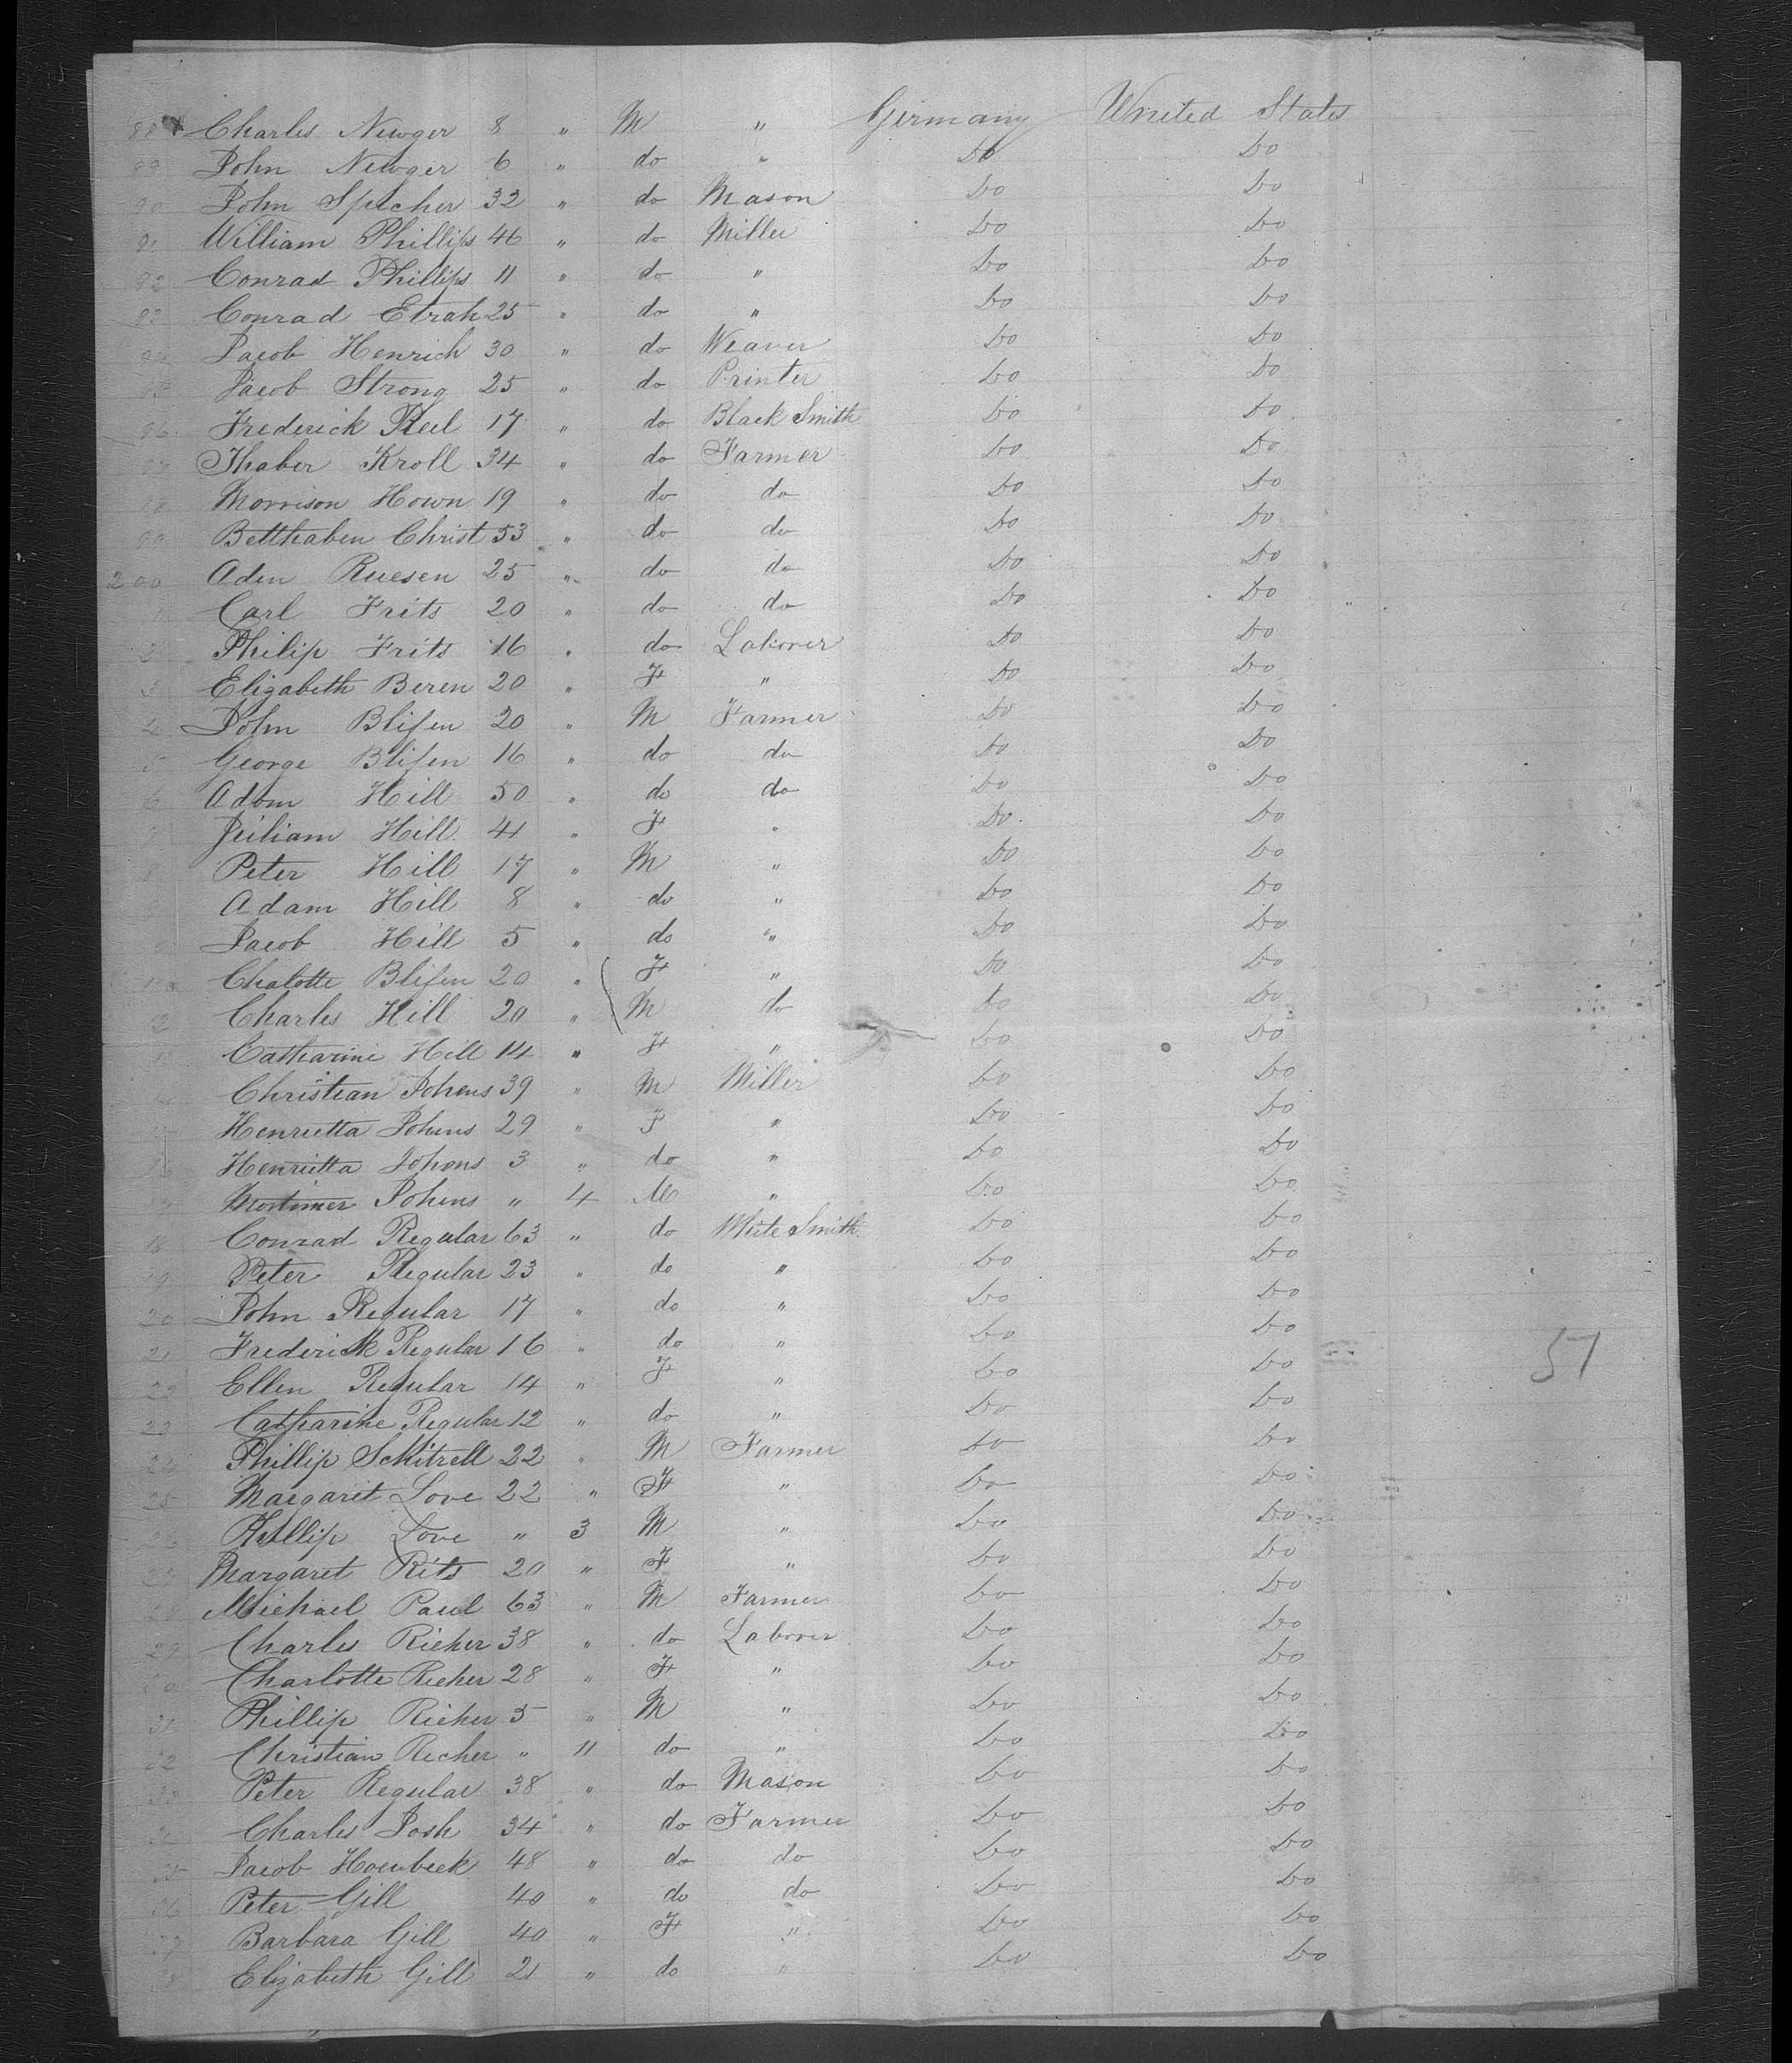 88 Charles Newger 8 " M " Germany United States
89 John Newger 6 " do " Do Do
90 John Spicher 32 " do Mason Do Do
91 William Phillips 46 " do Miller Do Do
92 Conrad Phillips 11 " do " Do Do
93 Conrad Etrah 25 " do " Do Do
94 Jacob Henrich 30 " do Weaver Do Do
95 Jacob Strong 25 " do Printer Do Do
96 Frederick Reel 17 " do Black Smith Do Do
97 Thaber Kroll 34 " do Farmer Do Do
98 Morrison Hown 19 " do do Do Do
99 Betthaben Christ 53 " do do Do Do
200 Aden Ruesen 25 " do do Do Do
1 Carl Frits 20 " do do Do Do
2 Philip Frits 16 " do Laborer Do Do
3 Elizabeth Beren 20 " F " Do Do
4 John Blifen 20 " M Farmer Do Do
5 George Blifen 16 " do do Do Do
6 Adam Hill 50 " do do Do Do
Juliam Hill 41 " F " Do Do
8 Peter Hill 17 " M " Do Do
Adam Hill 8 " do " Do Do
Jacob Hill 5 " do " Do Do
Chalotte Blifen 20 " F " Do Do
12 Charles Hill 20 " M do Do Do
Catharine Hill 14 " F " Do Do
Christian Johens 39 " M Miller Do Do
Henrietta Johens 29 " F " Do Do
Henrietta Johons 3 " do " Do Do
Mortimer Johens " 4 M " Do Do
18 Conrad Regular 63 " do White Smith Do Do
19 Peter Regular 23 " do " Do Do
20 John Regular 17 " do " Do Do
21 Frederick Regular 16 " do " Do Do
22 Ellen Regular 14 " F " Do Do
23 Catharine Regular 12 " do " Do Do
24 Phillip Schitrell 22 " M Farmer Do Do
25 Margaret Love 22 " F " Do Do
26 Phillip Love " 3 M " Do Do
27 Margaret Rits 20 " F " Do Do
28 Michael Paul 63 " M Farmer Do Do
29 Charles Richer 38 " do Laborer Do Do
30 Charlotte Richer 28 " F " Do Do
31 Phillip Richer 5 " M " Do Do
32 Christian Richer " 11 do " Do Do
33 Peter Regular 38 " do Mason Do Do
34 Charles Josh 34 " do Farmer Do Do
35 Jacob Hoenbeek 48 " do do Do Do
36 Peter Gill 40 " do do Do Do
37 Barbara Gill 40 " F " Do Do
38 Elizabeth Gill 21 " do " Do Do
51